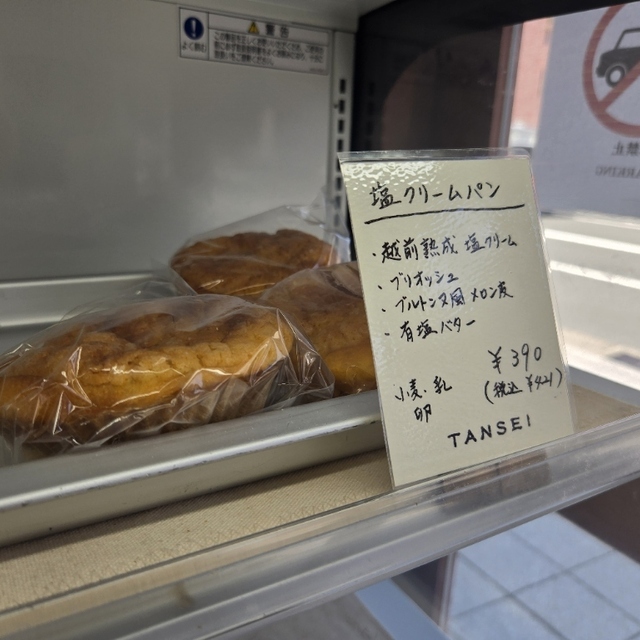 警告
塩クリームパン
・越前熟成 塩クリーム
・ブリオッシュ
・ブルトンヌ風メロン皮
・有塩バター
¥390
小麦・乳
卵
(税込 ¥421)
TANSEI
禁止
PARKING